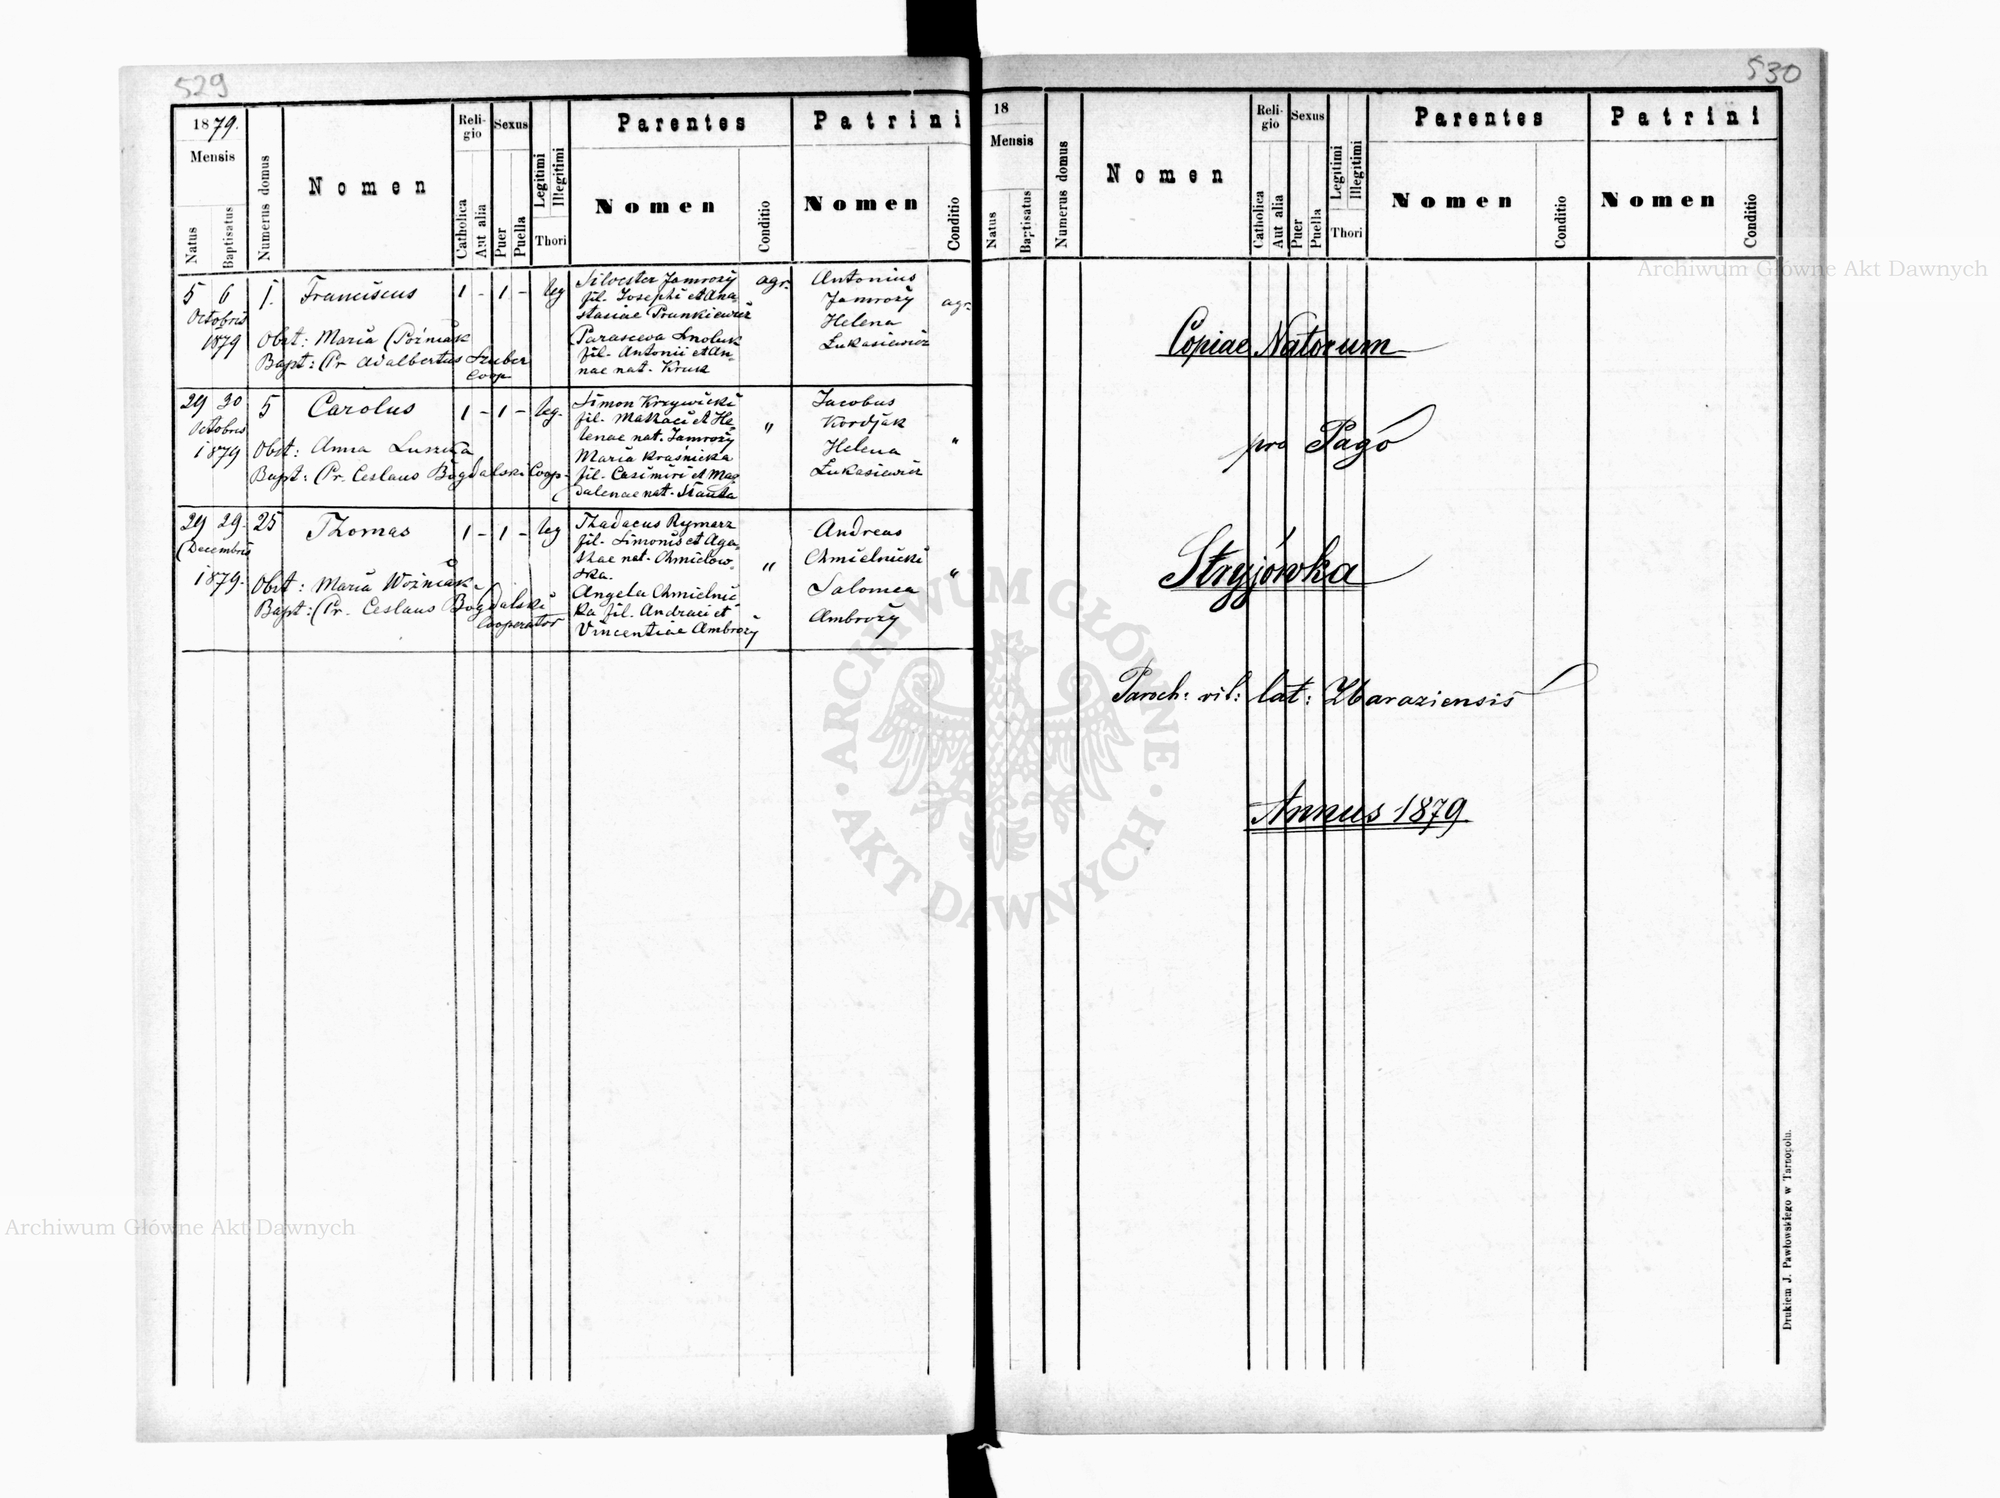 529
1879.
Mensis
Natus
Baptisatus
Numerus domus
Nomen
Religio
Catholica
Aut alia
Sexus
Puer
Puella
Legitimi
Illegitimi
Thori
Parentes
Nomen
Conditio
Patrini
Nomen
Conditio
5 6 1. Franciscus 1 - 1 - leg
Octobris
1879
Obst: Maria Poźniak
Bapt: Pr Adalbertus Szuber
Coop
Silvester Jamroży agr.
fil. Josephi et Ana-
stasiae Prunkiewicz
Parasceva Smoluk
fil. Antonii et An-
nae nat. Kruk
Antonius
Jamroży agr.
Helena
Łukasiewicz
29 30 5 Carolus 1 - 1 - leg.
Octobris
1879
Obst: Anna
Bapt: Pr. Ceslaus Bogdalski Coop.
Simon Krzywicki
fil. Mathaei et He-
lenae nat. Jamroży "
Maria Kraśnicka
fil. Casimiri et Mag
dalenae nat.
Jacobus
Kordjak
Helena "
Łukasiewicz
29 29. 25 Thomas 1 - 1 - leg
Decembris
1879.
Obst: Maria Woźniak
Bapt: Pr. Ceslaus Bogdalski
Cooperator
Thadaeus Rymarz
fil. Simonis et Aga-
thae nat. Chmielow-
ska. "
Angela Chmielnic
ka fil. Andraei et
Vincentiae Ambroży
Andreas
Chmielnicki
Salomea "
Ambroży
530
18
Mensis
Natus
Baptisatus
Numerus domus
Nomen
Religio
Catholica
Aut alia
Sexus
Puer
Puella
Legitimi
Illegitimi
Thori
Parentes
Nomen
Conditio
Patrini
Nomen
Conditio
Copiae Natorum
pro Pago
Stryjówka
Paroch: rit: lat: Zbaraziensis
Annus 1879
Drukiem J. Pawłowskiego w Tarnopolu.
Archiwum Główne Akt Dawnych
Archiwum Główne Akt Dawnych
ARCHIWUM GŁÓWNE · AKT DAWNYCH ·